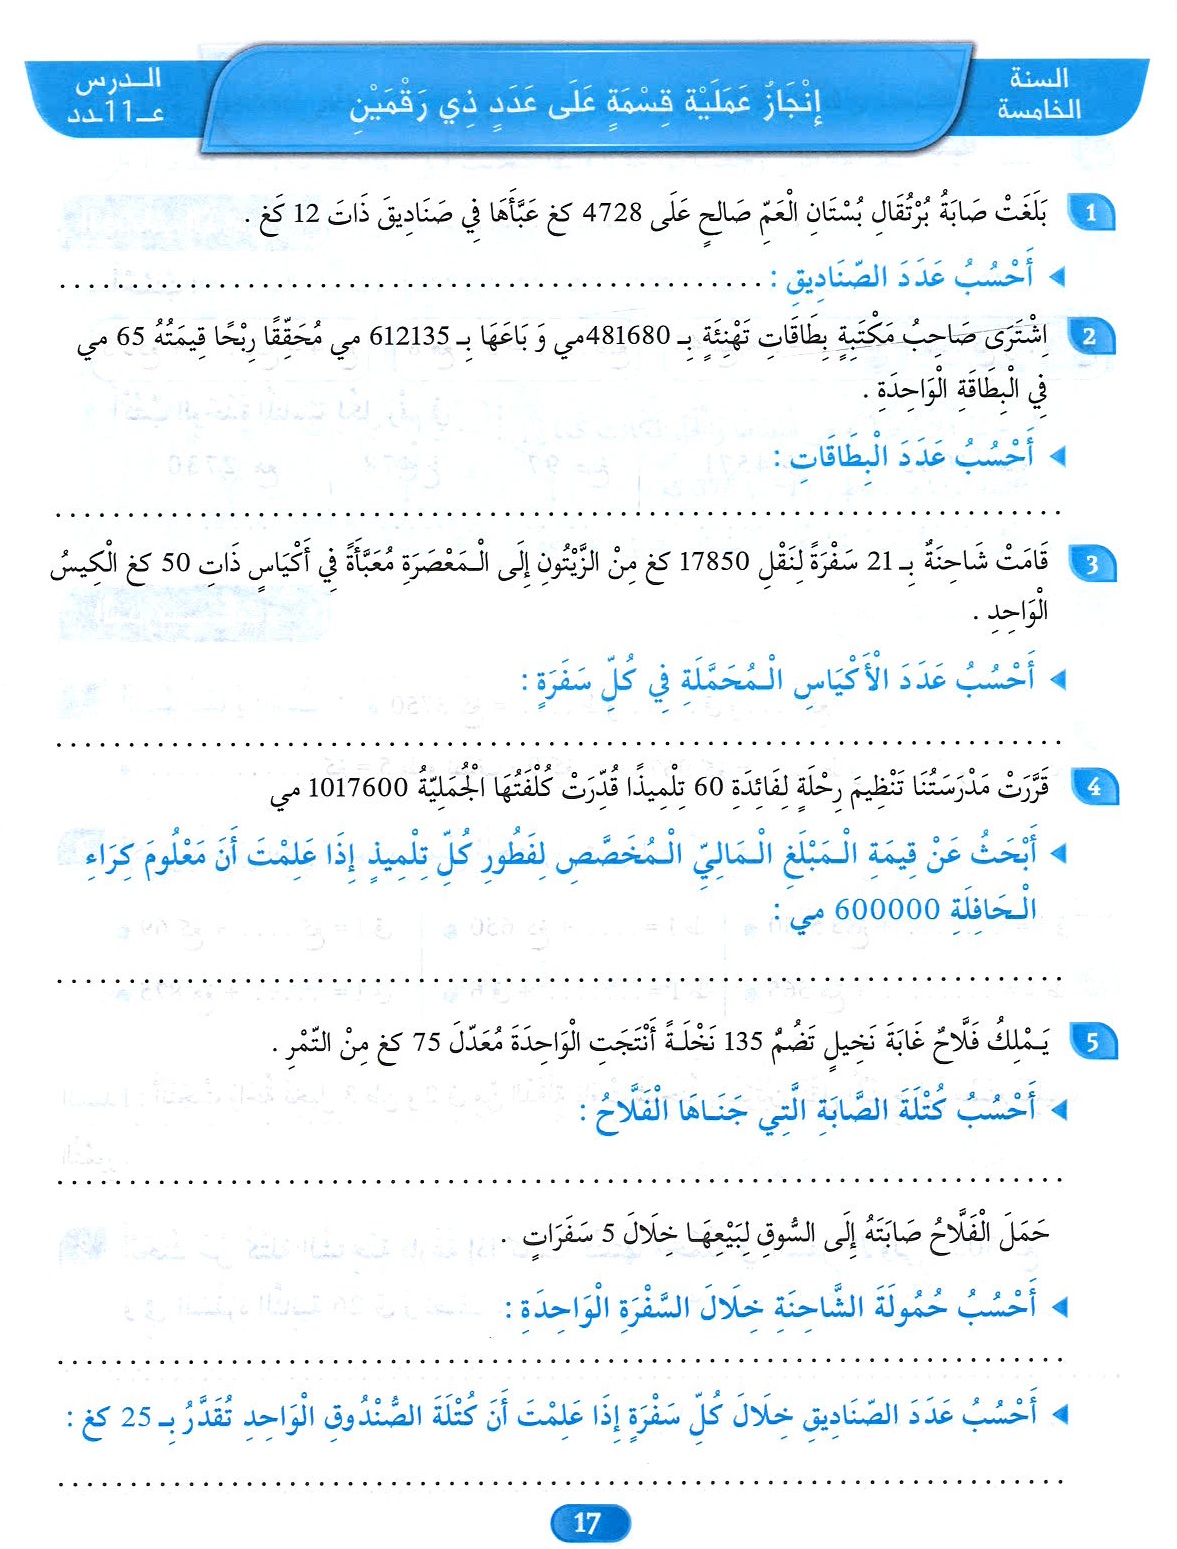 السنة
الخامسة
إِنْجَازُ عَمَلِيَّةِ قِسْمَةٍ عَلَى عَدَدٍ ذِي رَقْمَيْنِ
الـدرس
عـ11ـدد
1 بَلَغَتْ صَابَةُ بُرْتُقَالِ بُسْتَانِ الْعَمِّ صَالحٍ عَلَى 4728 كغ عَبَّأَهَا فِي صَنَادِيقَ ذَاتَ 12 كَغ .
أَحْسُبُ عَدَدَ الصّنَادِيقِ : ................................................
2 اِشْتَرَى صَاحِبُ مَكْتَبَةٍ بِطَاقَاتِ تَهْنِئَةٍ بِـ 481680مي وَ بَاعَهَا بِـ 612135 مي مُحَقِّقًا رِبْحًا قِيمَتُهُ 65 مي
فِي الْبِطَاقَةِ الْوَاحِدَةِ .
أَحْسُبُ عَدَدَ الْبِطَاقَاتِ :
................................................................................
3 قَامَتْ شَاحِنَةٌ بِـ 21 سَفْرَةً لِنَقْلِ 17850 كغ مِنْ الزَّيْتُونِ إِلَى الْـمَعْصَرَةِ مُعَبَّأَةً فِي أَكْيَاسٍ ذَاتِ 50 كغ الْكِيسُ
الْوَاحِدِ .
أَحْسُبُ عَدَدَ الْأَكْيَاسِ الْـمُحَمَّلَةِ فِي كُلِّ سَفَرَةٍ :
................................................................................
4 قَرَّرَتْ مَدْرَسَتُنَا تَنْظِيمَ رِحْلَةٍ لِفَائِدَةِ 60 تِلْمِيذًا قُدِّرَتْ كُلْفَتُهَا الْجُمَلِيّةُ 1017600 مي
أَبْحَثُ عَنْ قِيمَةِ الْـمَبْلَغِ الْـمَالِيِّ الْـمُخَصَّصِ لِفَطُورِ كُلِّ تِلْمِيذٍ إِذَا عَلِمْتَ أَنَ مَعْلُومَ كِرَاءِ
الْـحَافِلَةِ 600000 مي :
................................................................................
5 يَـمْلِكُ فَلَّاحٌ غَابَةَ نَخِيلٍ تَضُمُّ 135 نَخْلَـةً أَنْتَجَتِ الْوَاحِدَةَ مُعَدّلَ 75 كغ مِنَ التّمْرِ .
أَحْسُبُ كُتْلَةَ الصَّابَةِ الَّتِي جَنَـاهَا الْفَلَّاحُ :
................................................................................
حَمَلَ الْفَلَّاحُ صَابَتَهُ إِلَى السُّوقِ لِبَيْعِهَـا خِلَالَ 5 سَفَرَاتٍ .
أَحْسُبُ حُمُولَةَ الشَّاحِنَةِ خِلَالَ السَّفْرَةِ الْوَاحِدَةِ :
................................................................................
أَحْسُبُ عَدَدَ الصّنَادِيقِ خِلَالَ كُلِّ سَفْرَةٍ إِذَا عَلِمْتَ أَنَ كُتْلَةَ الصُّنْدُوقِ الْوَاحِدِ تُقَدَّرُ بِـ 25 كغ :
................................................................................
17